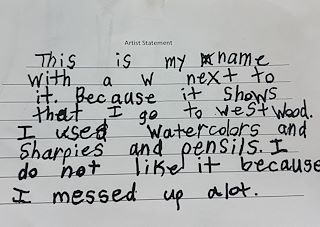 Artist Statement
This is my name
with a w next to
it. Because it shows
that I go to westwood.
I used watercolors and
Sharpies and pensils. I
do not like it because
I messed up alot.